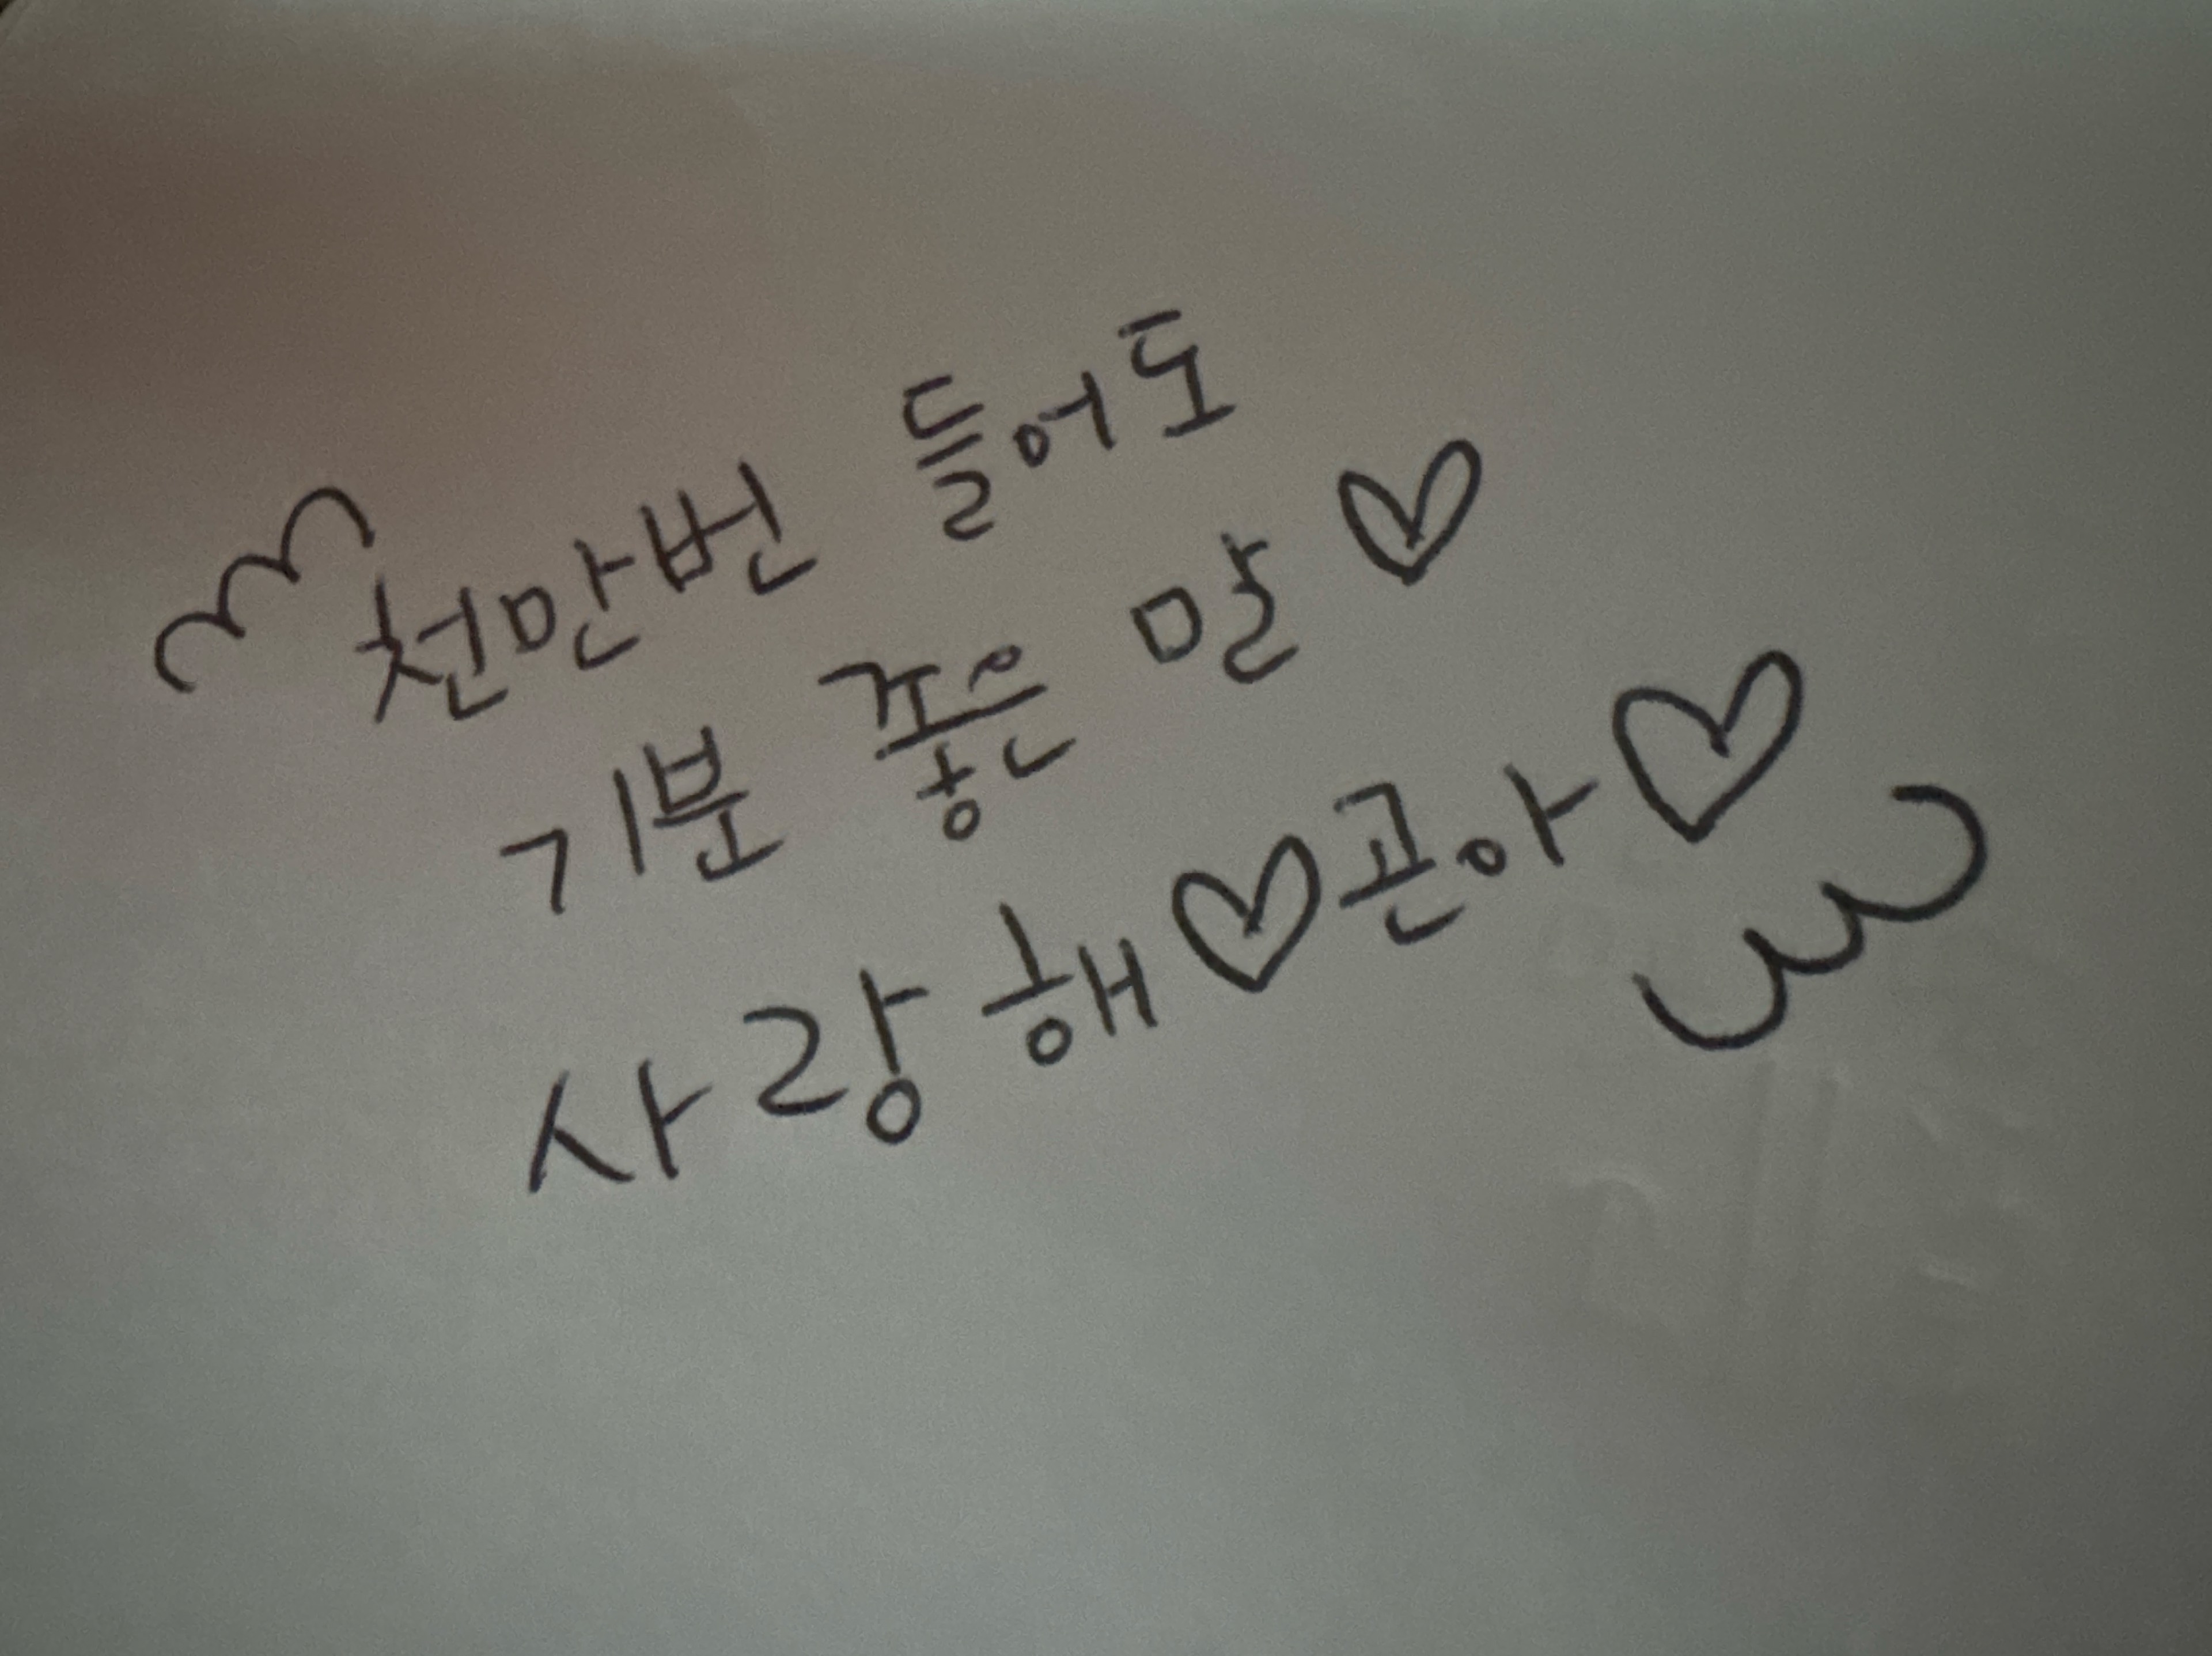 천만번 들어도
기분 좋은 말 ♡
사랑해 ♡ 곤아 ♡